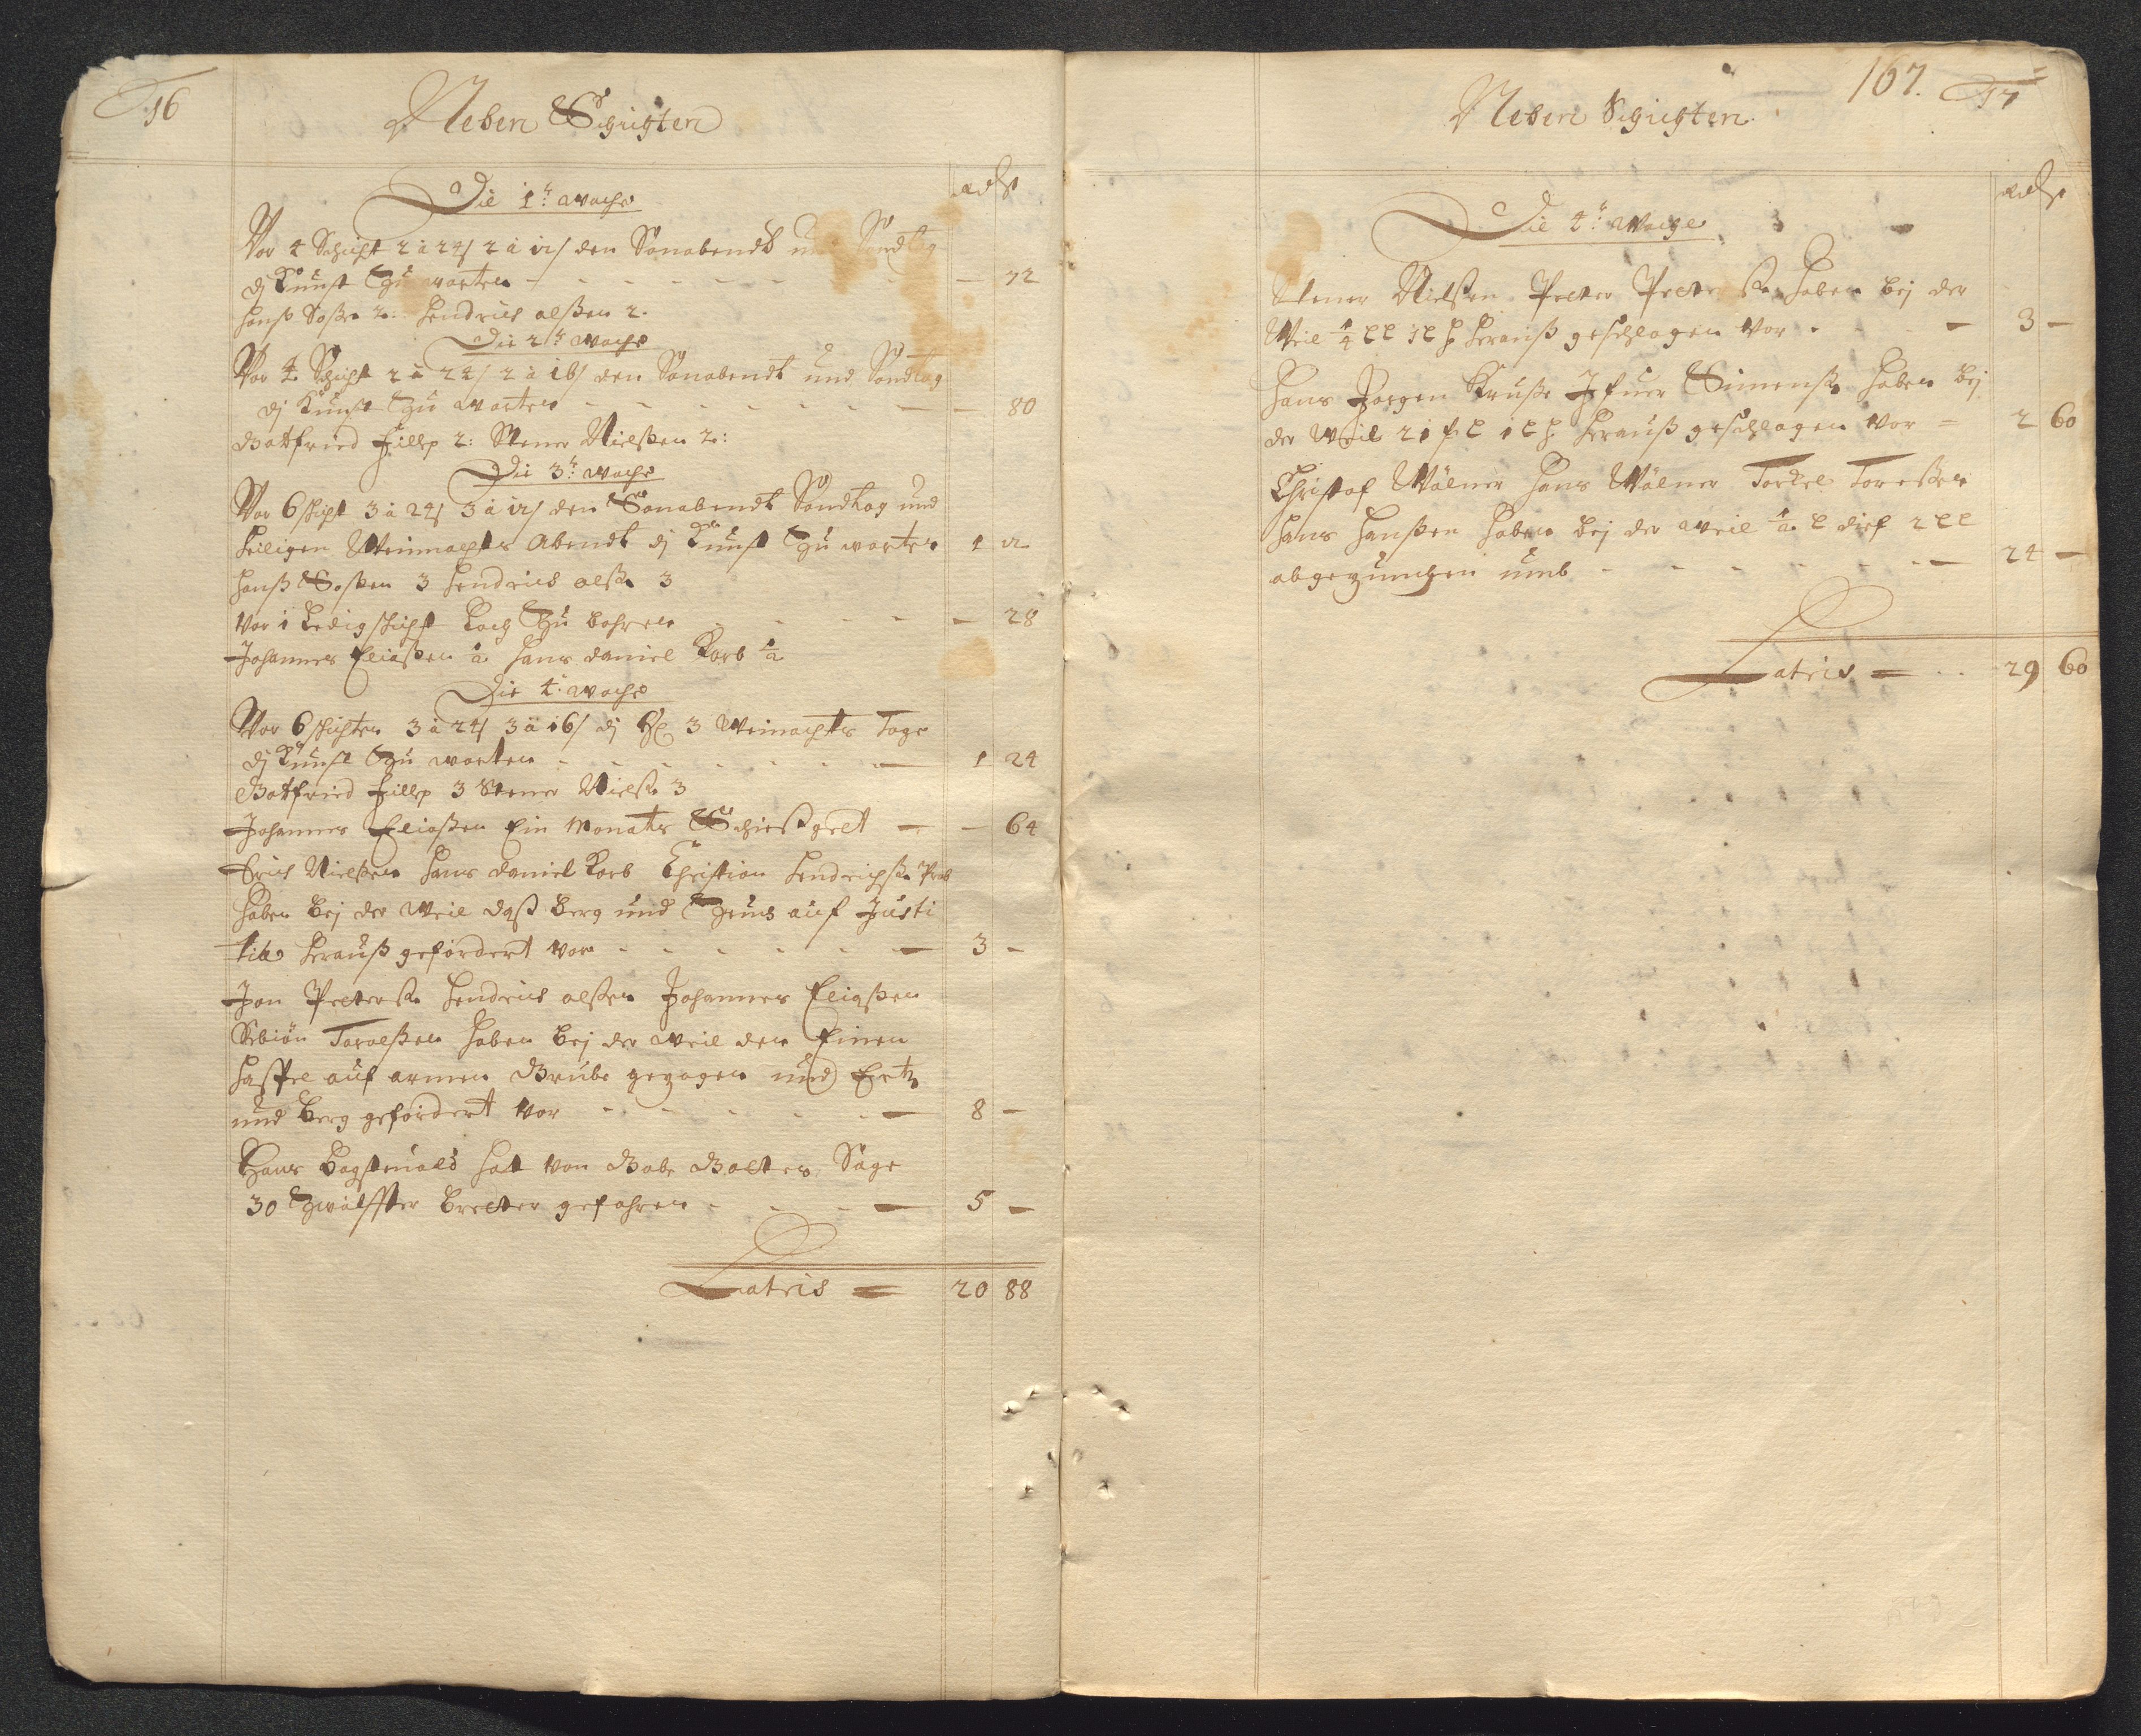 16
Neben Schichten
Die 1te. woche
Vor 4 Schicht 2 à 24/ 2 à 12/ den Sonabendt und Sondtag
dj Kunst Zu warten - - - - - - - 72
Hanß Soßen 2: Hendrich olßen 2.
Die 2te. woche
Vor 4 Schicht 2 à 24/ 2 à 16/ den Sonabendt und Sondtag
dj Kunst Zu warten - - - - - - - 80
Gottfried Hillsp 2: Stener Nielßen 2:
Die 3te. woche
Vor 6 schicht 3 à 24/ 3 à 12/ den Sonabendt Sondtag und
heiligen Weinnachts Abendt dj Kunst Zu warten 1 12
Hanß Soßen 3 Hendrich olß. 3
Vor 1 Ledig schicht Loch Zu bohren - - - - - 28
Johannes Eliaßen ½ Hans daniel Korb ½
Die 4. woche
Vor 6 schichten 3 à 24/ 3 à 16/ dj 3 Weinachts Tage
dj Kunst Zu warten - - - - - - 1 24
Gottfried Hillsp 3 Stener Nielß. 3
Johannes Eliaßen Ein Monats Schießgelt - - 64
Erich Nielßen Hans daniel Korb Christian Hendrichß.
Haben bej der Weil daß berg und Zeug auf Justi
tia herauß gefördert vor - - - - - - 3 -
Jon Peterß. Hendrich olßen Johannes Eliaßen
Torolßen haben bej der weil den Einen
Haspel auf armen Grube gezogen und Ertz
und berg gefördert vor - - - - - 8 -
Hans hat von Gabe Golten Säge
30 Zwölffter bretter gefahren - - - - 5 -
Latris = 20 88
167. 17
Neben Schichten
Die 4te. Woche
Stener Nielßen Peter Peterß. haben bej der
Weil herauß geschlagen vor - - 3 -
Hans Jorgen Kruße Simenß. haben bej
der Weil herauß geschlagen vor = 2 60
Christof Wölner Hans Wölner Torkel Toreßen
Hans Hanßen haben bej der weil
abgezimchen umb - - - - - - 24 -
Latris = - - 29 60